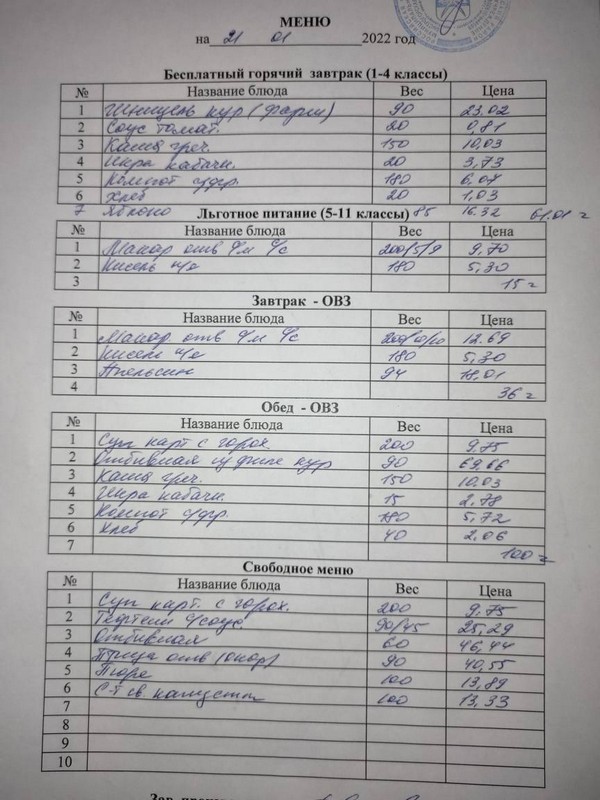 МЕНЮ
на 21 01 2022 год
Бесплатный горячий завтрак (1-4 классы)
№ Название блюда Вес Цена
1 Шницель кур (фарш) 90 23.02
2 Соус томат. 20 0,81
3 Каша греч. 150 10,03
4 Икра кабачк. 20 3,73
5 Компот с/фр. 180 6,07
6 Хлеб 20 1,03
7 Яблоко 85 16.32 61.01
Льготное питание (5-11 классы)
№ Название блюда Вес Цена
1 Макар отв с/м с/с 200/5/9 9,70
2 Кисель 180 5,30
3 15
Завтрак - ОВЗ
№ Название блюда Вес Цена
1 Макар. отв с/м с/с 12.69
2 Кисель 180 5,30
3 Апельсин 94 18,01
4 36
Обед - ОВЗ
№ Название блюда Вес Цена
1 Суп карт с горох 200 9,75
2 Отбивная из филе кур 90 69,66
3 Каша греч. 150 10,03
4 Икра кабачк. 15 2,78
5 Компот с/фр. 180 5,72
6 Хлеб 40 2,06
7 100
Свободное меню
№ Название блюда Вес Цена
1 Суп карт. с горох. 200 9,75
2 Тефтели с/соус 90/45 25,29
3 Отбивная 60 46,44
4 Птица отв (окор) 90 40,55
5 Пюре 100 13,89
6 С-т св. капусты 100 13,33
7
8
9
10